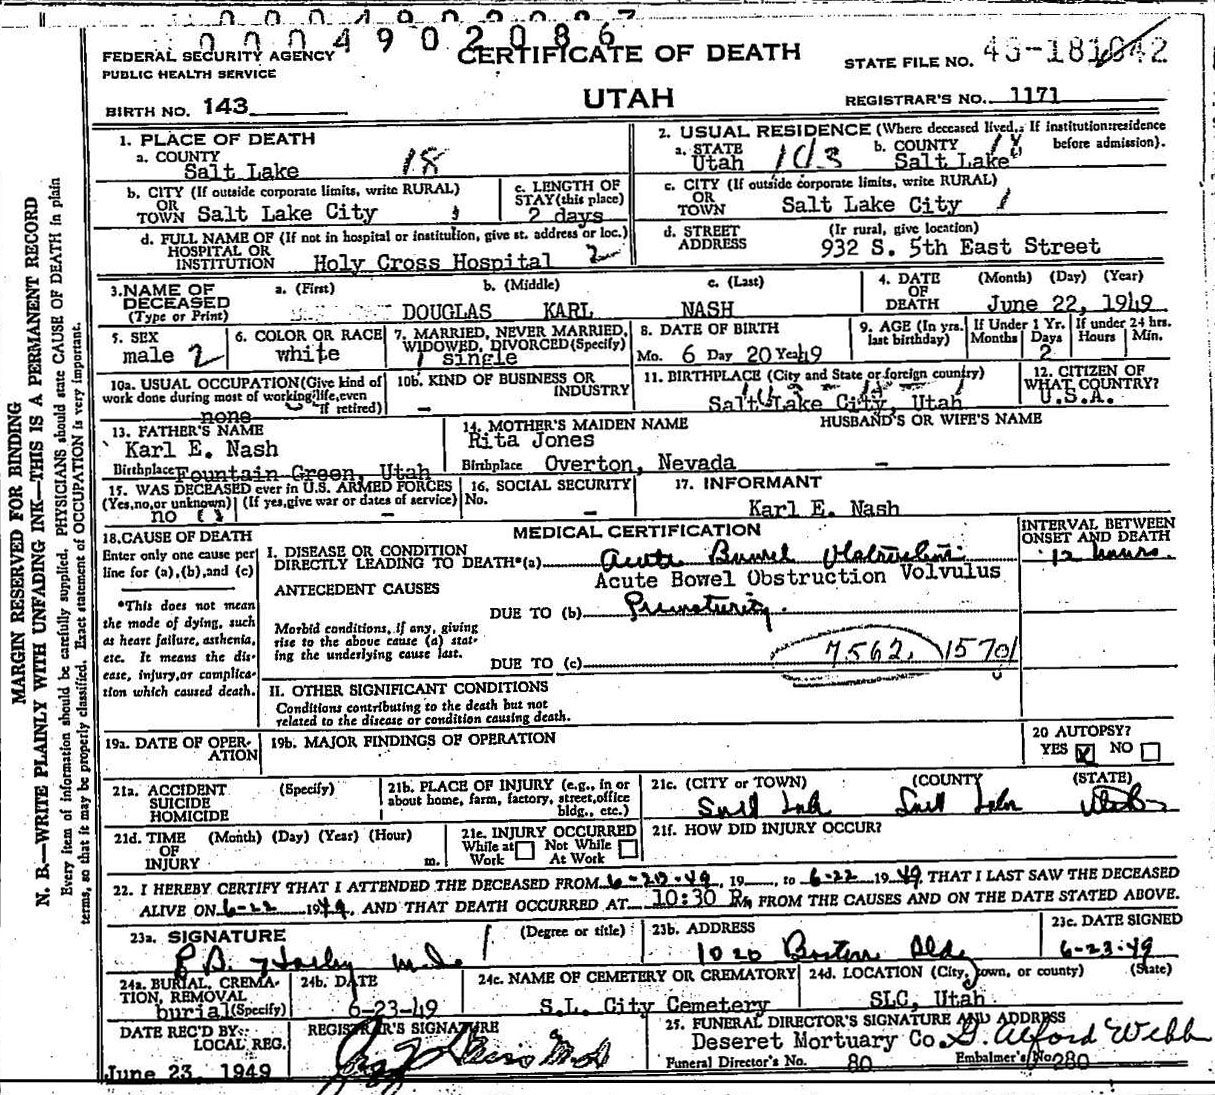 0004902086
FEDERAL SECURITY AGENCY
PUBLIC HEALTH SERVICE
CERTIFICATE OF DEATH
STATE FILE NO.
BIRTH NO. 143
UTAH
REGISTRAR'S NO. 1171
1. PLACE OF DEATH
a. COUNTY
Salt Lake 18
2. USUAL RESIDENCE (Where deceased lived. If institution: residence before admission).
a. STATE Utah 103
b. COUNTY Salt Lake 18
b. CITY (If outside corporate limits, write RURAL)
OR
TOWN Salt Lake City
c. LENGTH OF
STAY (this place)
2 days
c. CITY (If outside corporate limits, write RURAL)
OR
TOWN Salt Lake City 1
d. FULL NAME OF (If not in hospital or institution, give st. address or loc.)
HOSPITAL OR
INSTITUTION Holy Cross Hospital 2
d. STREET
ADDRESS
(If rural, give location)
932 S. 5th East Street
3. NAME OF
DECEASED
(Type or Print)
a. (First) b. (Middle) c. (Last)
DOUGLAS KARL NASH
4. DATE
OF
DEATH
(Month) (Day) (Year)
June 22, 1949
5. SEX
male 2
6. COLOR OR RACE
white
7. MARRIED, NEVER MARRIED,
WIDOWED, DIVORCED (Specify)
1 single
8. DATE OF BIRTH
Mo. 6 Day 20 Year 49
9. AGE (In yrs.
last birthday)
If Under 1 Yr.
Months Days
2
If under 24 hrs.
Hours Min.
10a. USUAL OCCUPATION (Give kind of
work done during most of working life, even
if retired)
none
10b. KIND OF BUSINESS OR
INDUSTRY
-
11. BIRTHPLACE (City and State or foreign country)
Salt Lake City, Utah
12. CITIZEN OF
WHAT COUNTRY?
U.S.A.
13. FATHER'S NAME
Karl E. Nash
Birthplace Fountain Green, Utah
14. MOTHER'S MAIDEN NAME
Rita Jones
Birthplace Overton, Nevada
HUSBAND'S OR WIFE'S NAME
-
15. WAS DECEASED ever in U.S. ARMED FORCES
(Yes, no, or unknown) (If yes, give war or dates of service)
no -
16. SOCIAL SECURITY
No.
-
17. INFORMANT
Karl E. Nash
18. CAUSE OF DEATH
Enter only one cause per
line for (a), (b), and (c)
*This does not mean
the mode of dying, such
as heart failure, asthenia,
etc. It means the dis-
ease, injury, or complica-
tion which caused death.
MEDICAL CERTIFICATION
INTERVAL BETWEEN
ONSET AND DEATH
I. DISEASE OR CONDITION
DIRECTLY LEADING TO DEATH*(a) Acute Bowel Obstruction
12 hours
Acute Bowel Obstruction Volvulus
ANTECEDENT CAUSES
DUE TO (b) Prematurity.
Morbid conditions, if any, giving
rise to the above cause (a) stat-
ing the underlying cause last.
DUE TO (c)
7562, 1570
II. OTHER SIGNIFICANT CONDITIONS
Conditions contributing to the death but not
related to the disease or condition causing death.
19a. DATE OF OPER-
ATION
19b. MAJOR FINDINGS OF OPERATION
20 AUTOPSY?
YES X NO
21a. ACCIDENT
SUICIDE
HOMICIDE
(Specify)
21b. PLACE OF INJURY (e.g., in or
about home, farm, factory, street, office
bldg., etc.)
21c. (CITY or TOWN) (COUNTY) (STATE)
Salt Lake Salt Lake Utah
21d. TIME
OF
INJURY
(Month) (Day) (Year) (Hour)
m.
21e. INJURY OCCURRED
While at
Work
Not While
At Work
21f. HOW DID INJURY OCCUR?
22. I HEREBY CERTIFY THAT I ATTENDED THE DECEASED FROM 6-20-49, 19__, to 6-22 1949 THAT I LAST SAW THE DECEASED
ALIVE ON 6-22 1949, AND THAT DEATH OCCURRED AT 10:30 P.m FROM THE CAUSES AND ON THE DATE STATED ABOVE.
23a. SIGNATURE
(Degree or title)
M.D.
23b. ADDRESS
1020 Boston Bldg
23c. DATE SIGNED
6-23-49
24a. BURIAL, CREMA-
TION, REMOVAL
burial (Specify)
24b. DATE
6-23-49
24c. NAME OF CEMETERY OR CREMATORY
S.L. City Cemetery
24d. LOCATION (City, town, or county) (State)
SLC, Utah
DATE REC'D BY
LOCAL REG.
June 23, 1949
REGISTRAR'S SIGNATURE
25. FUNERAL DIRECTOR'S SIGNATURE AND ADDRESS
Deseret Mortuary Co. G. Alford Webb
Funeral Director's No. 80 Embalmer's No 280
MARGIN RESERVED FOR BINDING
N. B.—WRITE PLAINLY WITH UNFADING INK—THIS IS A PERMANENT RECORD
Every item of information should be carefully supplied. PHYSICIANS should state CAUSE OF DEATH in plain
terms, so that it may be properly classified. Exact statement of OCCUPATION is very important.